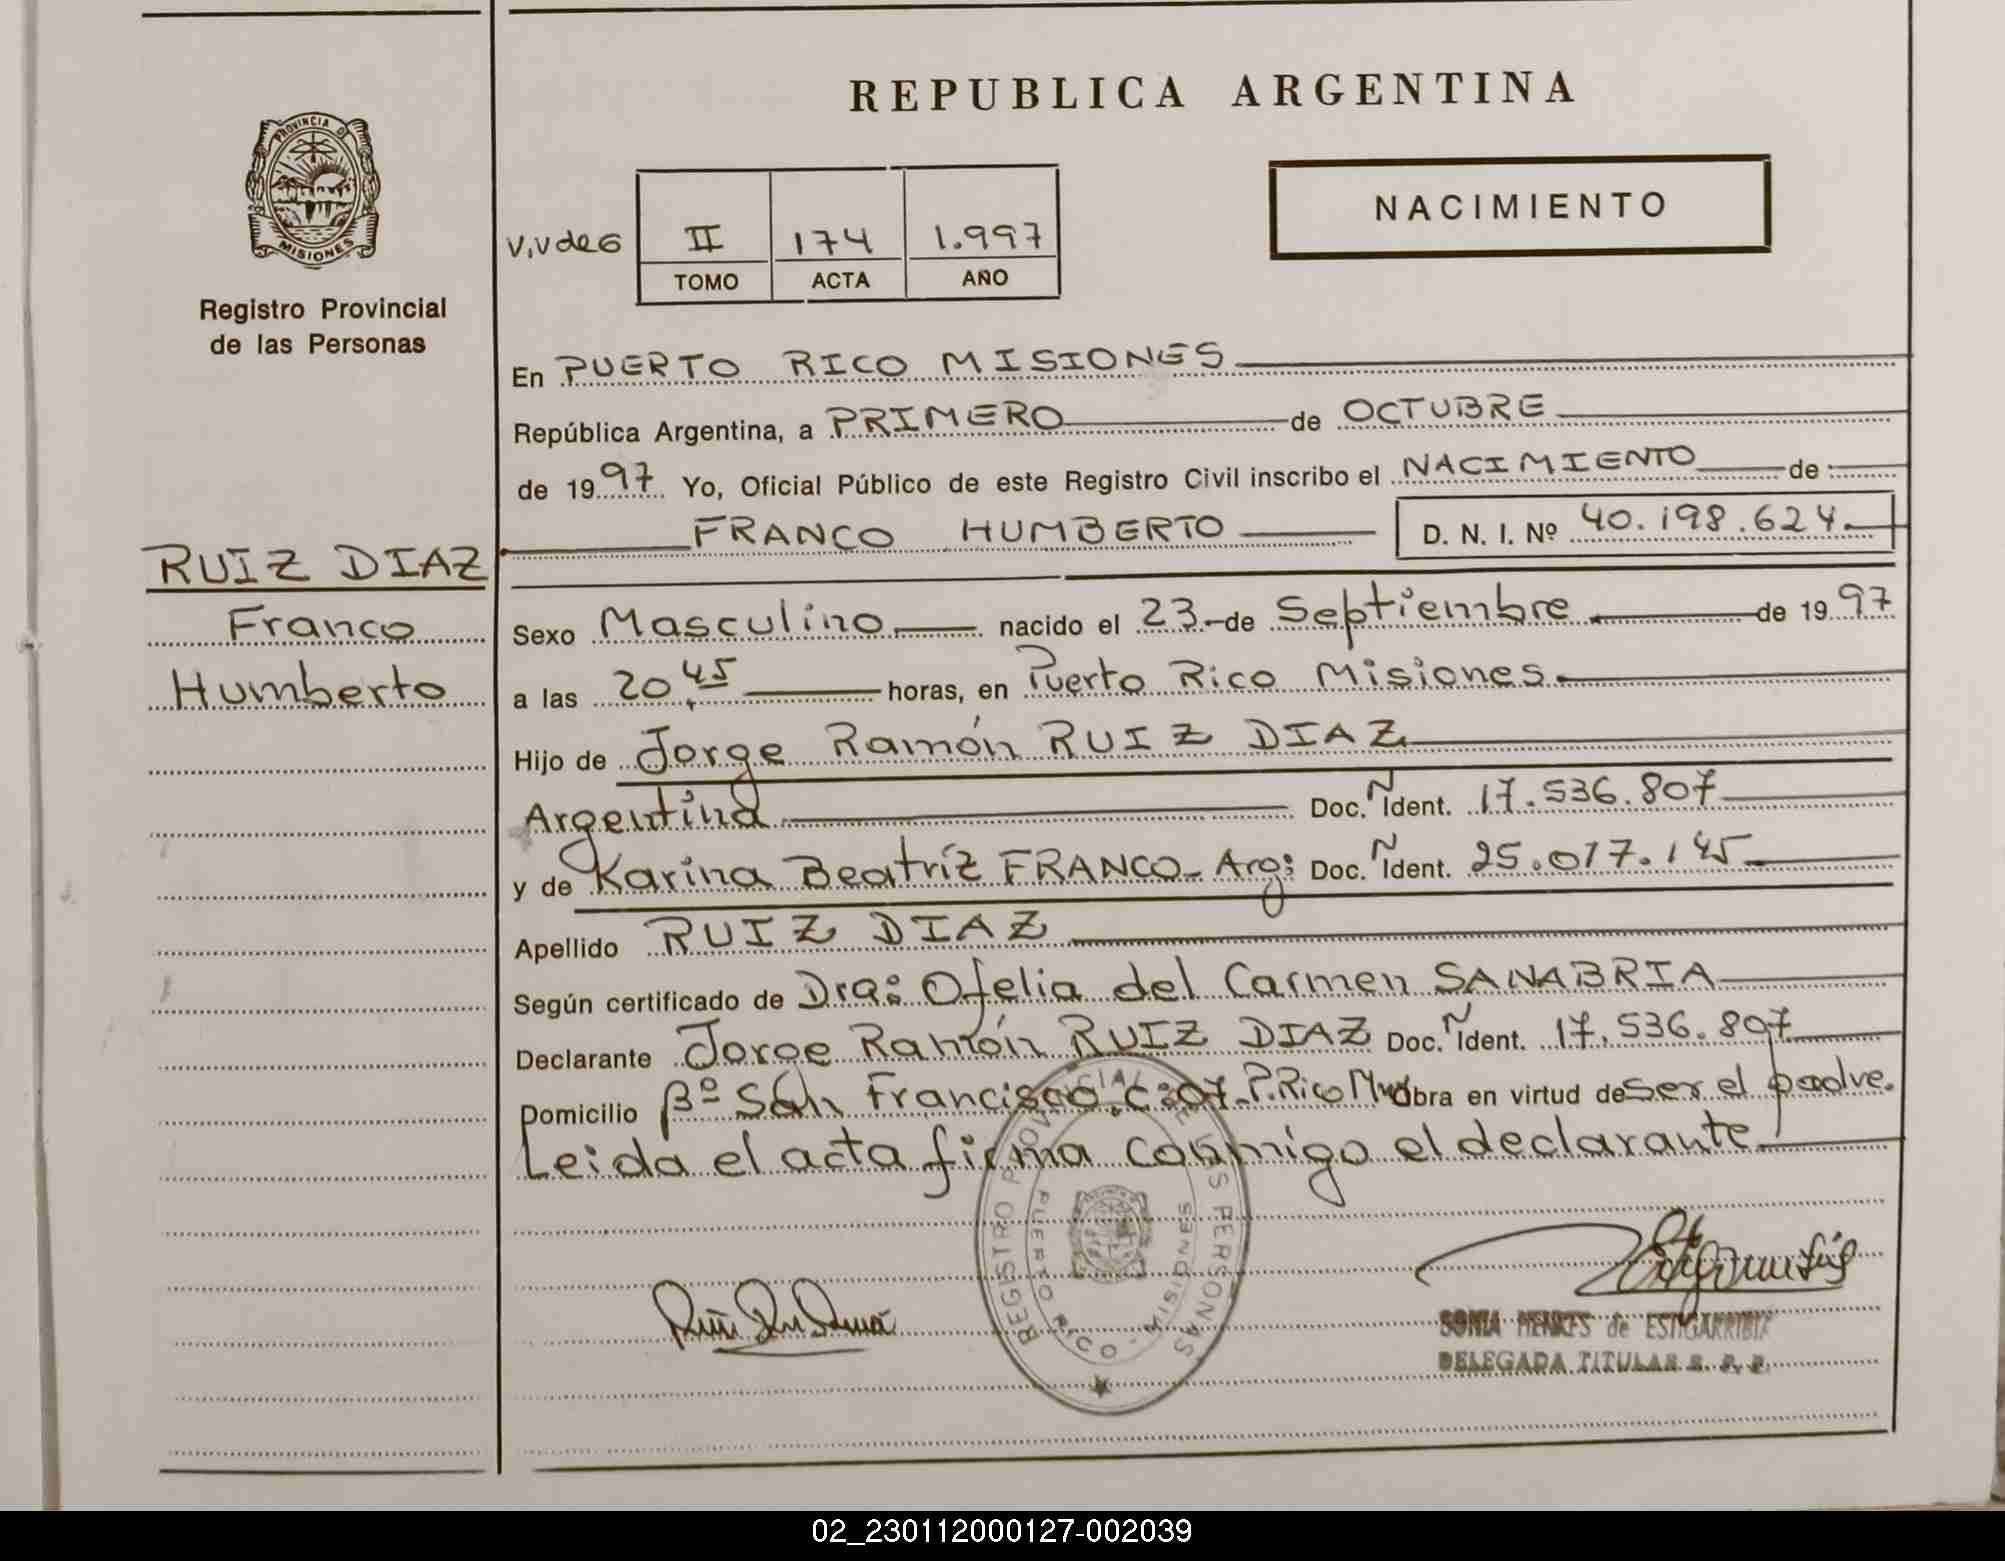 REPUBLICA ARGENTINA
PROVINCIA D
MISIONES
Registro Provincial
de las Personas
NACIMIENTO
II 174 1.997
TOMO ACTA AÑO
En PUERTO RICO MISIONES
República Argentina, a PRIMERO de OCTUBRE
de 1997 Yo, Oficial Público de este Registro Civil inscribo el NACIMIENTO de
FRANCO HUMBERTO D. N. I. Nº 40.198.624.
RUIZ DIAZ
Franco
Humberto
Sexo Masculino nacido el 23 de Septiembre de 1997
a las 20 45 horas, en Puerto Rico Misiones
Hijo de Jorge Ramón RUIZ DIAZ
Argentina Doc. Ñ Ident. 17.536.807
y de Karina Beatríz FRANCO - Arg: Doc. Ñ Ident. 25.017.145
Apellido RUIZ DIAZ
Según certificado de Dra: Ofelia del Carmen SANABRIA
Declarante Jorge Ramón RUIZ DIAZ Doc. Ñ Ident. 17.536.807
Domicilio Bº San Francisco C:07 - P.Rico Obra en virtud de ser el padre.
Leida el acta firma conmigo el declarante
REGISTRO PROVINCIAL DE LAS PERSONAS
PUERTO RICO - MISIONES
SONIA de ESTIGARRIBIA
DELEGADA TITULAR R. P. P.
02_230112000127-002039